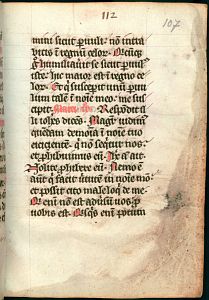 112
107
mini sicut paruuli nõ intra
bitis ĩ regnũ celoꝝ Quicũqꝫ
g̃ humiliauit se sicut paruul̃
iste hic maior est ĩ regno ce
loꝝ Et q̃ susceꝑit unũ paru
lum talẽ ĩ noĩe meo me sus
cipit Respõdit
illi iohes dicẽs Magr̃ uidimꝰ
quẽdam demonia ĩ noĩe tuo
eicientẽ q̃ nõ sequitur nos
et phibuimus eũ Ihs ait
Nolite phibere eũ Nemo ẽ
aũt q̃ faciat uirtutẽ ĩ noĩe meo
et possit cito male loq̃ de me
Q̃ eni nõ est aduersũ uos ꝓ
uobis est Qͥsqͥs eni potum